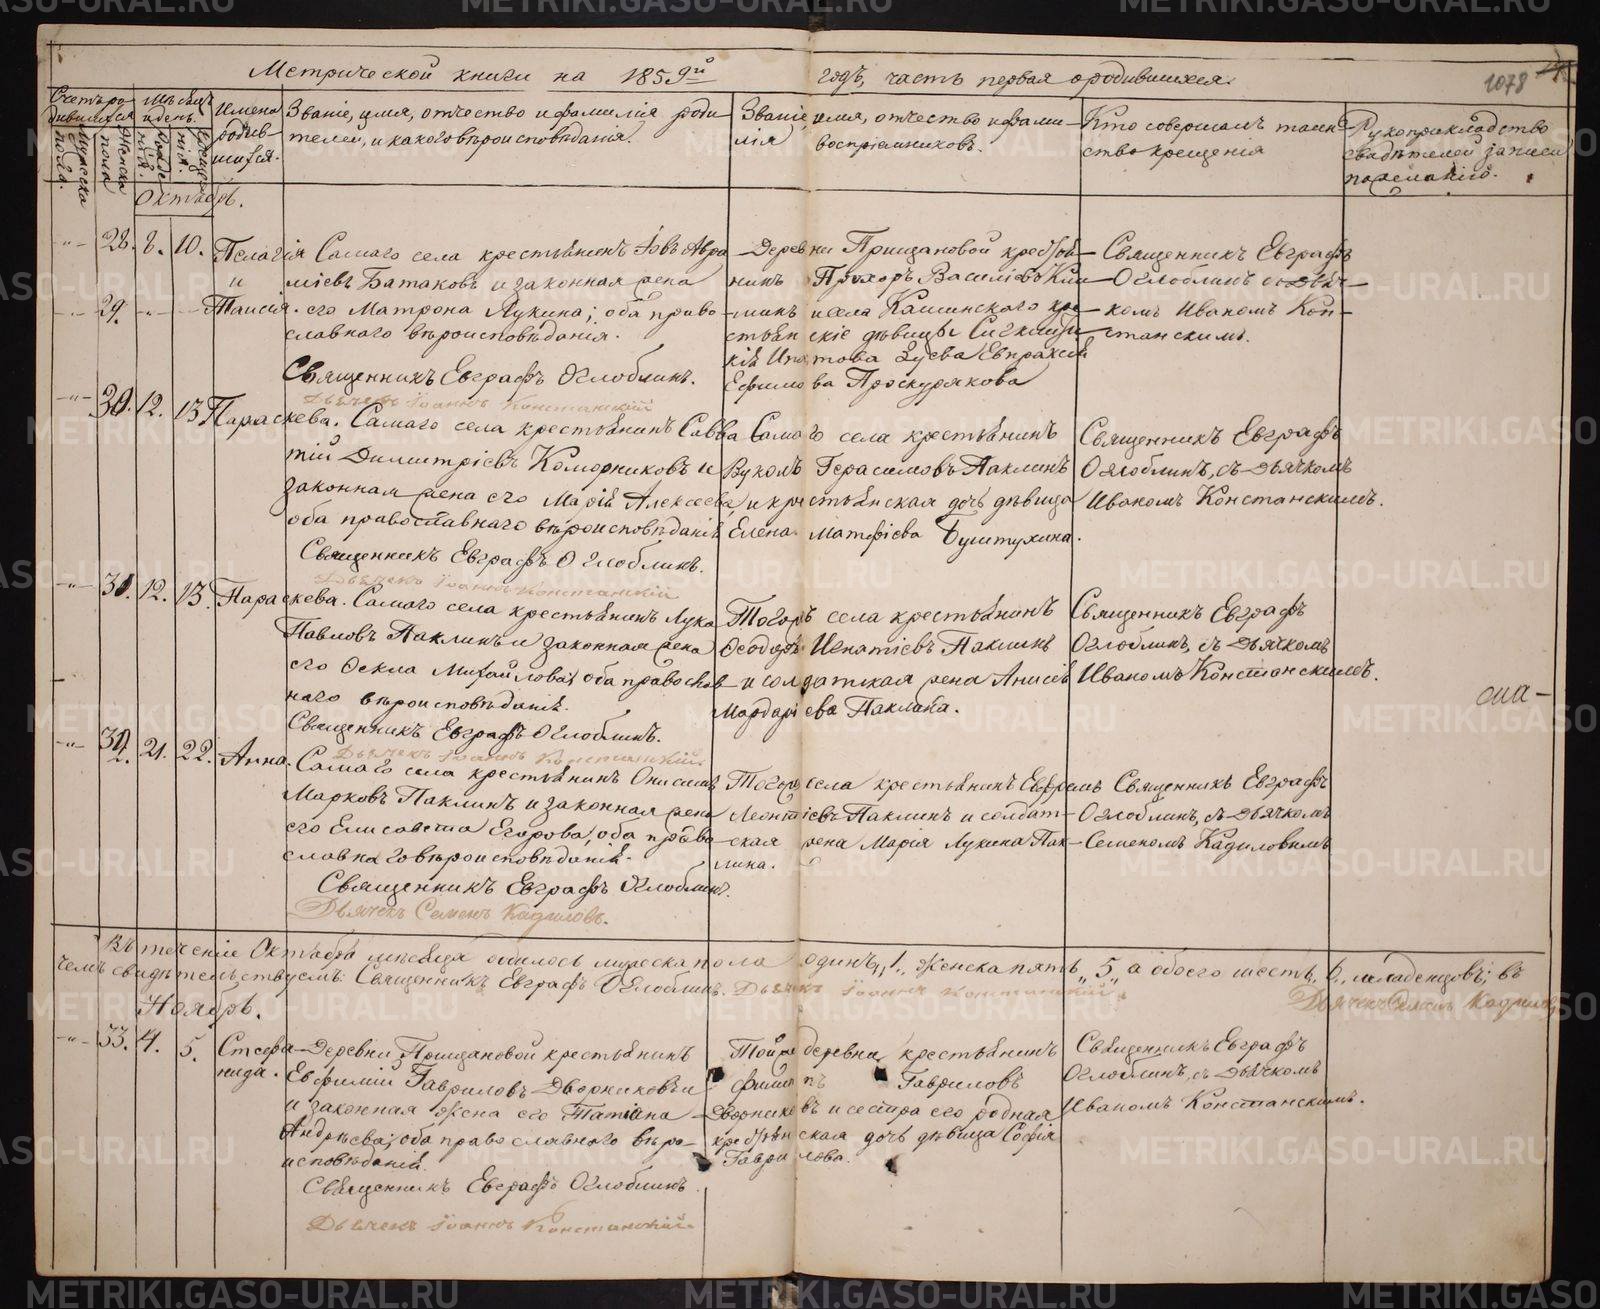 Метрической книги на 1859й годъ, часть первая о родившихся.
1078
Счетъ родившихся
Мужеска пола.
Женска пола
Мѣсяцъ и день.
Рожденія.
Крещенія.
Имена родившихся.
Званіе, имя, отчество и фамилія роди-
телей, и какого вѣроисповѣданія.
Званіе, имя, отчество и фами-
лія воспріемниковъ.
Кто совершалъ таин-
ство крещенія
Рукоприкладство
свидѣтелей записи
по желанію.
Октябрь.
28. 8. 10. Пелагія
и
29. Таисія.
Самаго села крестьянинъ Іовъ Авра
міевъ Батаковъ и законная жена
его Матрона Лукина; оба право-
славнаго вѣроисповѣданія.
Священникъ Евграфъ Оглоблинъ.
Дьячекъ Іоаннъ Констанскій
Деревни Прищановой кресть-
нинъ Прохоръ Васильевъ
и села Кашинскаго кре-
стьянскіе дѣвицы
Зуева Евпраксія
Ефимова Проскурякова
Священникъ Евграфъ
Оглоблинъ съ дьяч-
комъ Иваномъ Кон-
станскимъ.
30. 12. 13 Параскева.
Самаго села крестьянинъ Савва
тій Димитріевъ Коморниковъ и
законная жена его Марія Алексеева,
оба православнаго вѣроисповѣданія
Священникъ Евграфъ Оглоблинъ.
Дьячекъ Іоаннъ Констанскій
Самаго села крестьянинъ
Вуколъ Герасимовъ Паклинъ
и крестьянская дочь дѣвица
Елена Матфіева Буштухина.
Священникъ Евграфъ
Оглоблинъ, съ дьячкомъ
Иваномъ Констанскимъ.
31. 12. 13. Параскева.
Самаго села крестьянинъ Лука
Павловъ Паклинъ и законная жена
его Ѳекла Михайлова; оба православ
наго вѣроисповѣданія.
Священникъ Евграфъ Оглоблинъ.
Дьячекъ Іоаннъ Констанскій
Тогожъ села крестьянинъ
Ѳеодоръ Игнатіевъ Паклинъ
и солдатская жена Анисія
Мардаріева Паклина.
Священникъ Евграфъ
Оглоблинъ, съ дьячкомъ
Иваномъ Констанскимъ.
32. 21. 22. Анна.
Самаго села крестьянинъ Онисимъ
Марковъ Паклинъ и законная жена
его Елисавета Егорова, оба право-
славнаго вѣроисповѣданія.
Священникъ Евграфъ Оглоблинъ.
Дьячекъ Семенъ Кадиловъ.
Тогожъ села крестьянинъ Ефремъ
Леонтіевъ Паклинъ и солдат-
ская жена Марія Лукина Пак-
лина.
Священникъ Евграфъ
Оглоблинъ, съ дьячкомъ
Семеномъ Кадиловымъ
Въ теченіе Октября мѣсяца родилось мужеска пола одинъ „1„ женска пять „5„ а обоего шесть „6„ младенцовъ; въ
чемъ свидѣтельствуемъ: Священникъ Евграфъ Оглоблинъ. Дьячекъ Іоаннъ Констанскій.
Дьячекъ Семенъ Кадиловъ
Ноябрь.
33. 4. 5. Стефа-
нида.
Деревни Прищановой крестьянинъ
Евфимій Гавриловъ Дворниковъ
и законная жена его Татіана
Андрѣева; оба православнаго вѣро-
исповѣданія.
Священникъ Евграфъ Оглоблинъ
Дьячекъ Іоаннъ Констанскій
Той же деревни крестьянинъ
Филиппъ Гавриловъ
Дворниковъ и сестра его родная
крестьянская дочь дѣвица Софія
Гаврилова.
Священникъ Евграфъ
Оглоблинъ, съ дьячкомъ
Иваномъ Констанскимъ.
METRIKI.GASO-URAL.RU